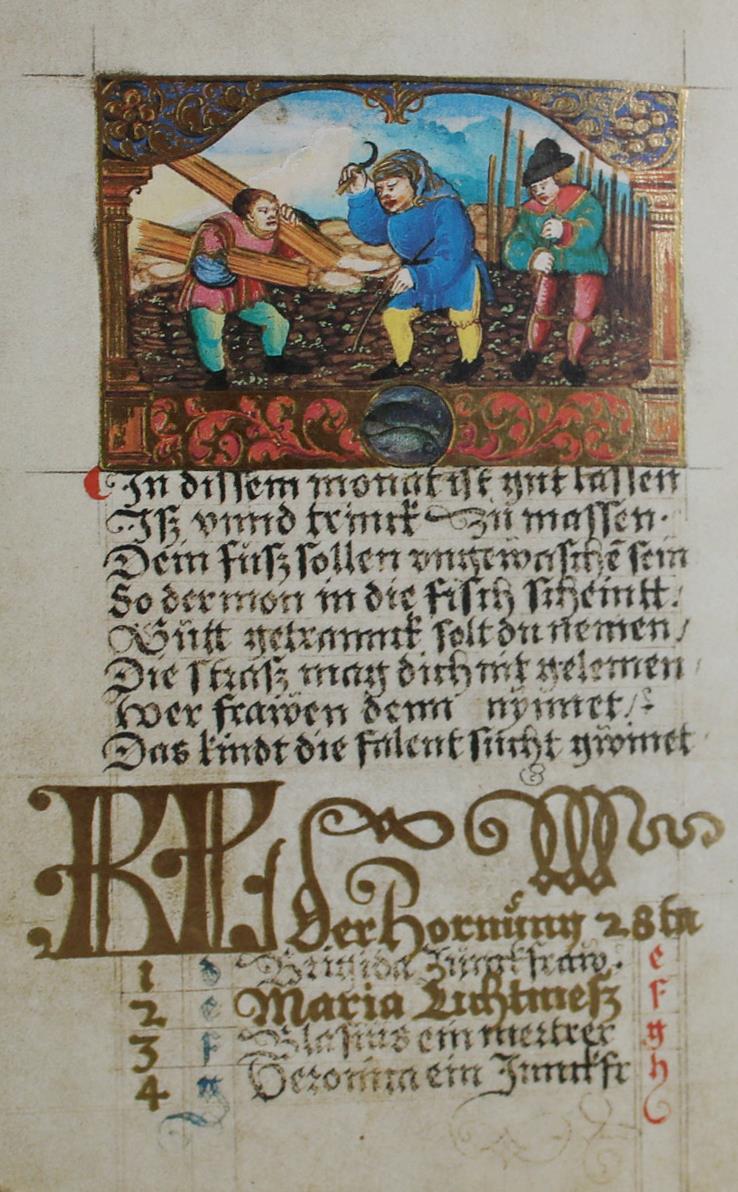 In dissem monat ist gut lassen
Isz vnnd trinck zů massen.
Dein füsz sollen vngewaschē sein
So der mon in die fisch scheintt.
Gůtt getrannck solt du nemen /
Die strasz mag dich nit gelemen
Wer frawen denn nymet /
Das kindt die falent sucht gwinet
KL
Der Hornung 28 ta
1 d Brigida Jungkfraw. e
2 e Maria Lichtmesz f
3 f Blasius ein mertrer g
4 g Veronica ein Junckfr h